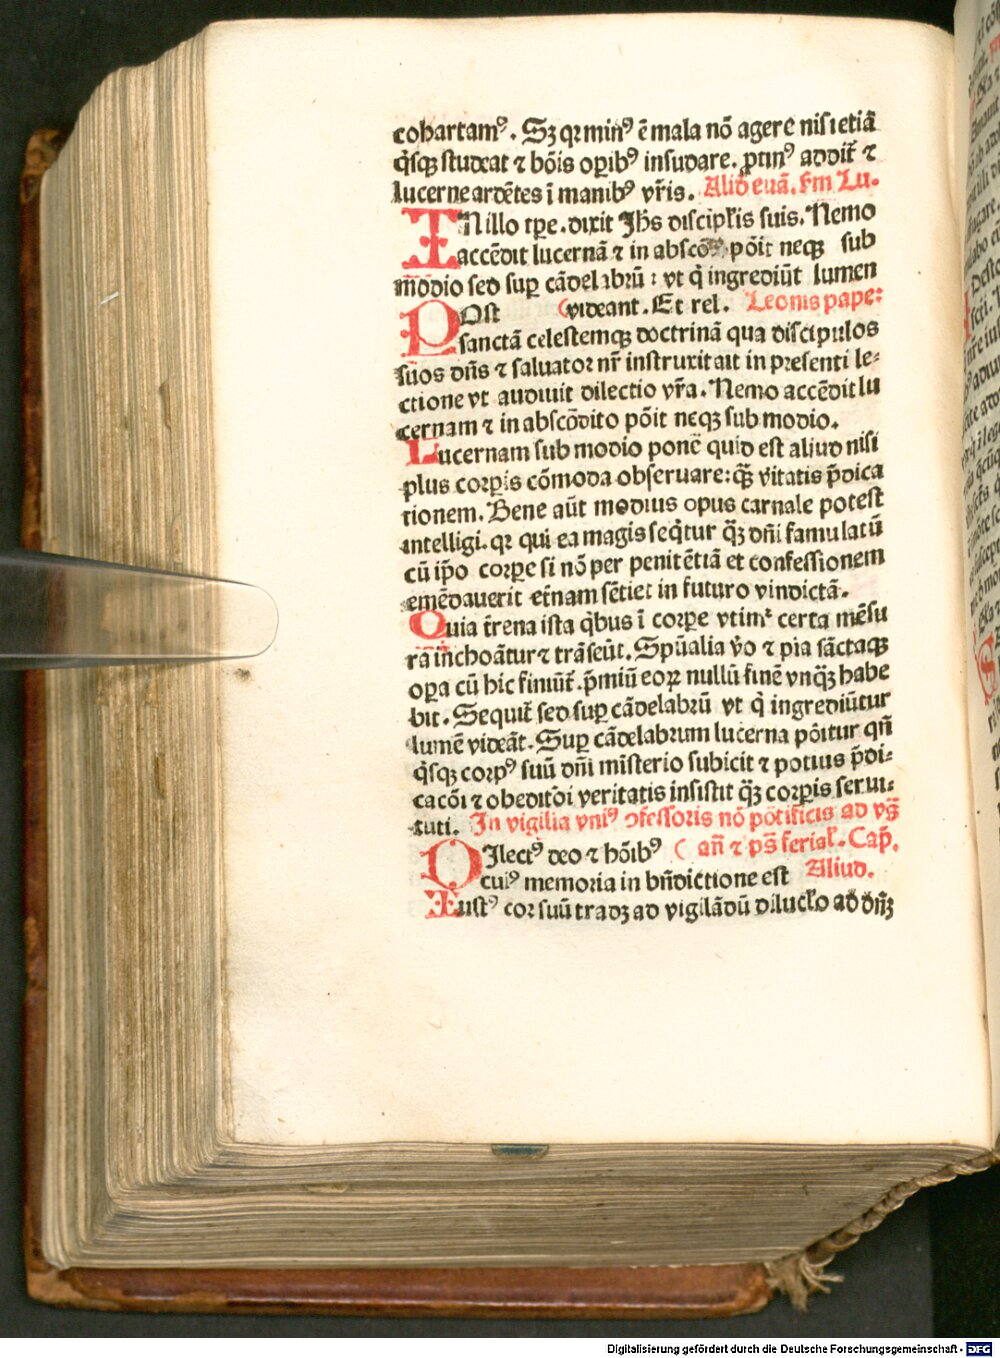 cohartamꝰ. Sꝫ qꝛ minꝰ ē mala nō agere nisi etiā
q̄sqꝫ studeat ⁊ bōis oꝑibꝰ insudare. ꝓtinꝰ addit̄ ⁊
lucerne ardētes ī manibꝰ vr̄is. Aliđ euā. ẜm Lu.
IN illo tꝑe. dixit Jh̄s discipl̄is suis. Nemo
accēdit lucernā ⁊ in abscō pōit neqꝫ sub
modio sed suꝑ cādelabrū : vt q̄ ingrediūt lumen
POst (videant. Et rel. Leonis pape:
sanctā celestemqꝫ doctrinā qua discipulos
suos dn̄s ⁊ saluator nr̄ instruxit ait in presenti le⸗
ctione vt audiuit dilectio vr̄a. Nemo accēdit lu
cernam ⁊ in abscōdito pōit neqꝫ sub modio.
Lucernam sub modio ponē quid est aliud nisi
plus corꝑis cōmoda obseruare: qꝫ̄ v̄itatis p̄dica
tionem. Bene aūt modius opus carnale potest
intelligi. qꝛ qui ea magis seq̄tur qꝫ̄ dn̄i famulatū
cū ip̄o corꝑe si nō per penitētiā et confessionem
emēdauerit et̄nam sētiet in futuro vindictā.
Quia t̄rena ista q̄bus ī corꝑe vtimᷣ certa mēsu
rā inchoātur ⁊ trāseūt. Spūalia v̄o ⁊ pia sāctaqꝫ
oꝑa cū hic finiūt̄. p̄miū eoꝝ nullū finē vnqꝫ̄ habe
bit. Sequit̄ sed suꝑ cādelabrū vt q̄ ingrediūtur
lumē videāt. Suꝑ cādelabrum lucerna pōitur qn̄
q̄sqꝫ corpꝰ suū dn̄i misterio subicit ⁊ potius p̄di⸗
cacōi ⁊ obedit̄oi veritatis insistit qꝫ̄ corꝑis serui⸗
tuti. In vigilia vniꝰ ꝯfessoris nō pōtificis ad vs̄
DIlectꝰ deo ⁊ hōibꝰ ( an̄ ⁊ ps̄ ferial̄. Cap̄.
cuiꝰ memoria in bn̄dictione est Aliud.
Iustꝰ cor suū tradꝫ ad vigilādū dilucl̄o ad dn̄ꝫ
Digitalisierung gefördert durch die Deutsche Forschungsgemeinschaft - DFG